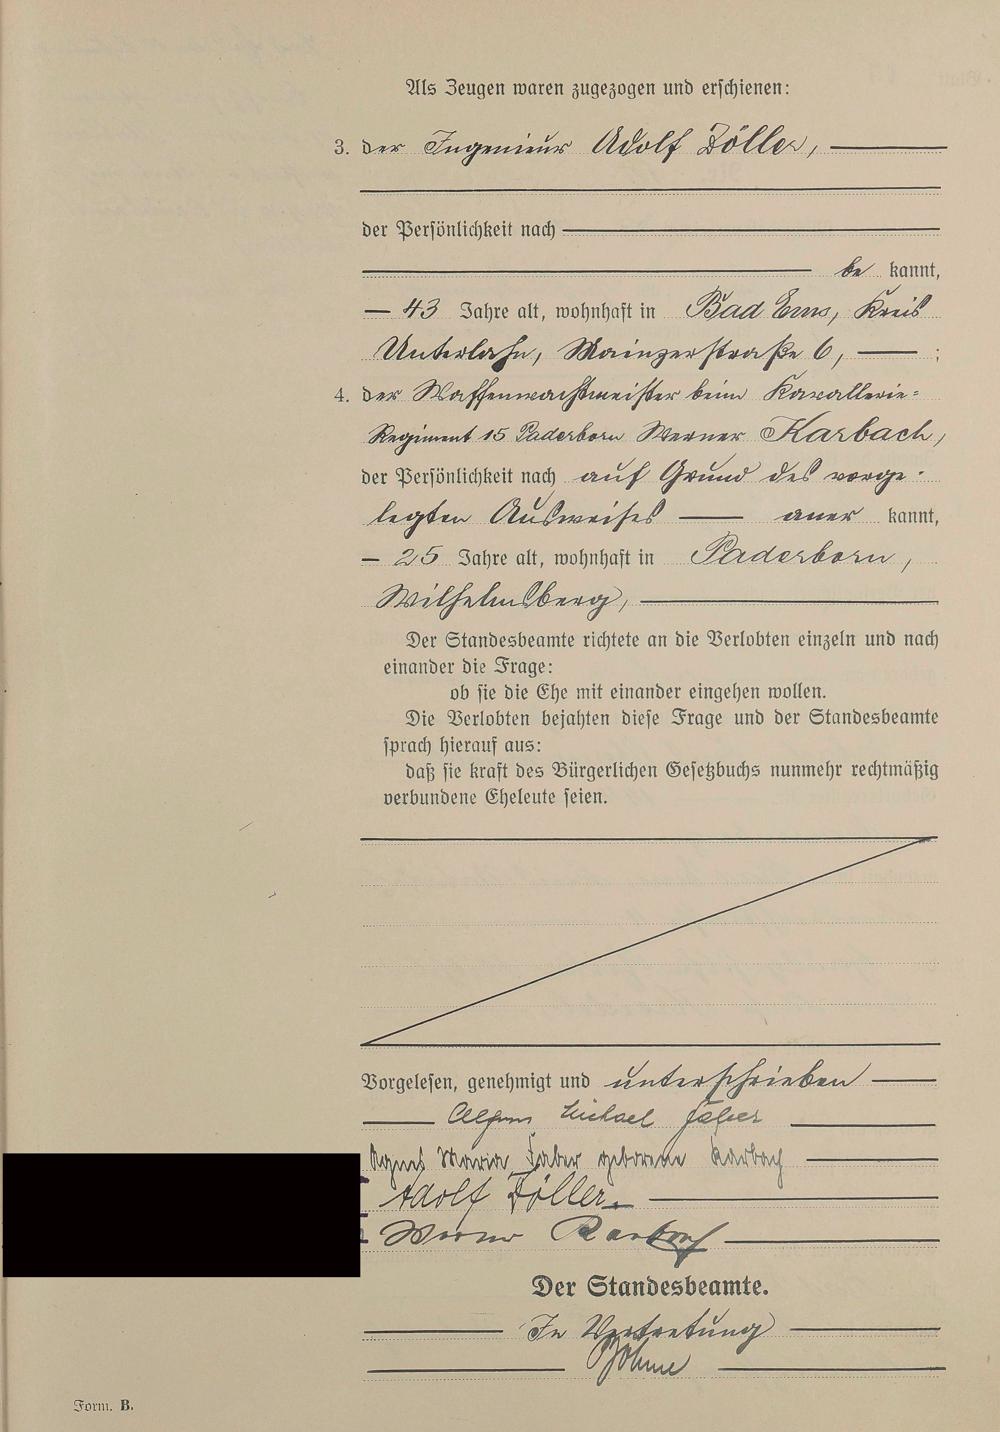 Als Zeugen waren zugezogen und erschienen:
3. der Ingenieur Adolf Zöller,
der Persönlichkeit nach
be kannt,
43 Jahre alt, wohnhaft in Bad Ems, Kreis
Unterlahn, Mainzerstraße 6, ;
4. der Waffenwachtmeister beim Kavallerie=
Regiment 15 Paderborn Werner Karbach,
der Persönlichkeit nach auf Grund des vorge-
legten Ausweises aner kannt,
25 Jahre alt, wohnhaft in Paderborn,
Wilhelmsberg,
Der Standesbeamte richtete an die Verlobten einzeln und nach
einander die Frage:
ob sie die Ehe mit einander eingehen wollen.
Die Verlobten bejahten diese Frage und der Standesbeamte
sprach hierauf aus:
daß sie kraft des Bürgerlichen Gesetzbuchs nunmehr rechtmäßig
verbundene Eheleute seien.
Vorgelesen, genehmigt und unterschrieben
Michael Faber
Agnes Maria Faber geborene Karbach
Adolf Zöller.
Werner Karbach
Der Standesbeamte.
In Vertretung
Böhme
Form. B.